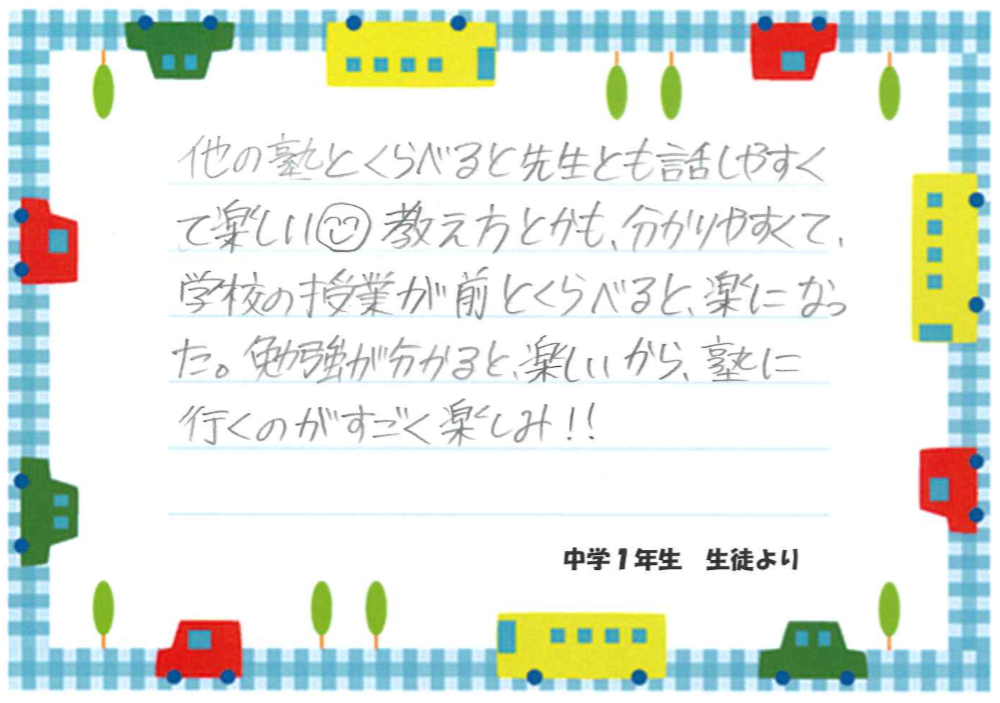 他の塾とくらべると先生とも話しやすく
て楽しい☺教え方とかも、分かりやすくて、
学校の授業が前とくらべると、楽になっ
た。勉強が分かると、楽しいから、塾に
行くのがすごく楽しみ!!
中学1年生 生徒より